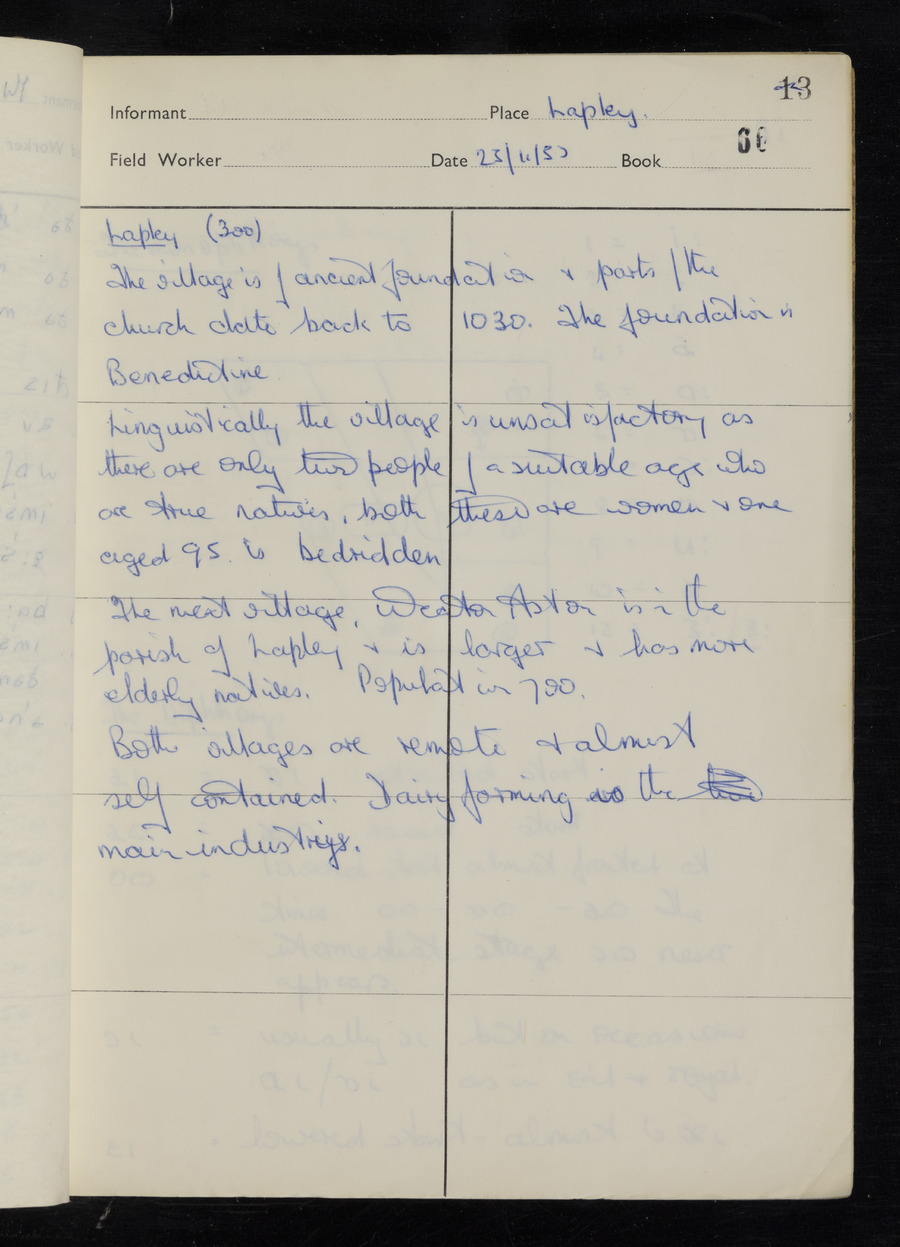 13
Informant Place Lapley.
60
Field Worker Date 25/11/53 Book
Lapley (300)
The village is of ancient foundation & parts of the
church date back to 1030. The foundation is
Benedictine
Linguistically the village is unsatisfactory as
there are only two people of a suitable age who
are true natives, both these are women & one
aged 95 is bedridden
The next village, Weston Aston is in the
parish of Lapley & is larger & has more
elderly natives. Population 700.
Both villages are remote & almost
self contained. Dairy farming is the
main industry.